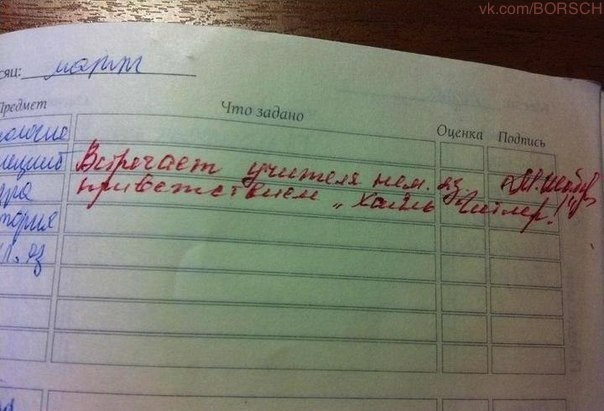 vk.com/BORSCH
сяц: март
Предмет Что задано Оценка Подпись
ология
Встречает учителя нем. яз.
приветствием „Хайль Гитлер!"
тория
л. яз